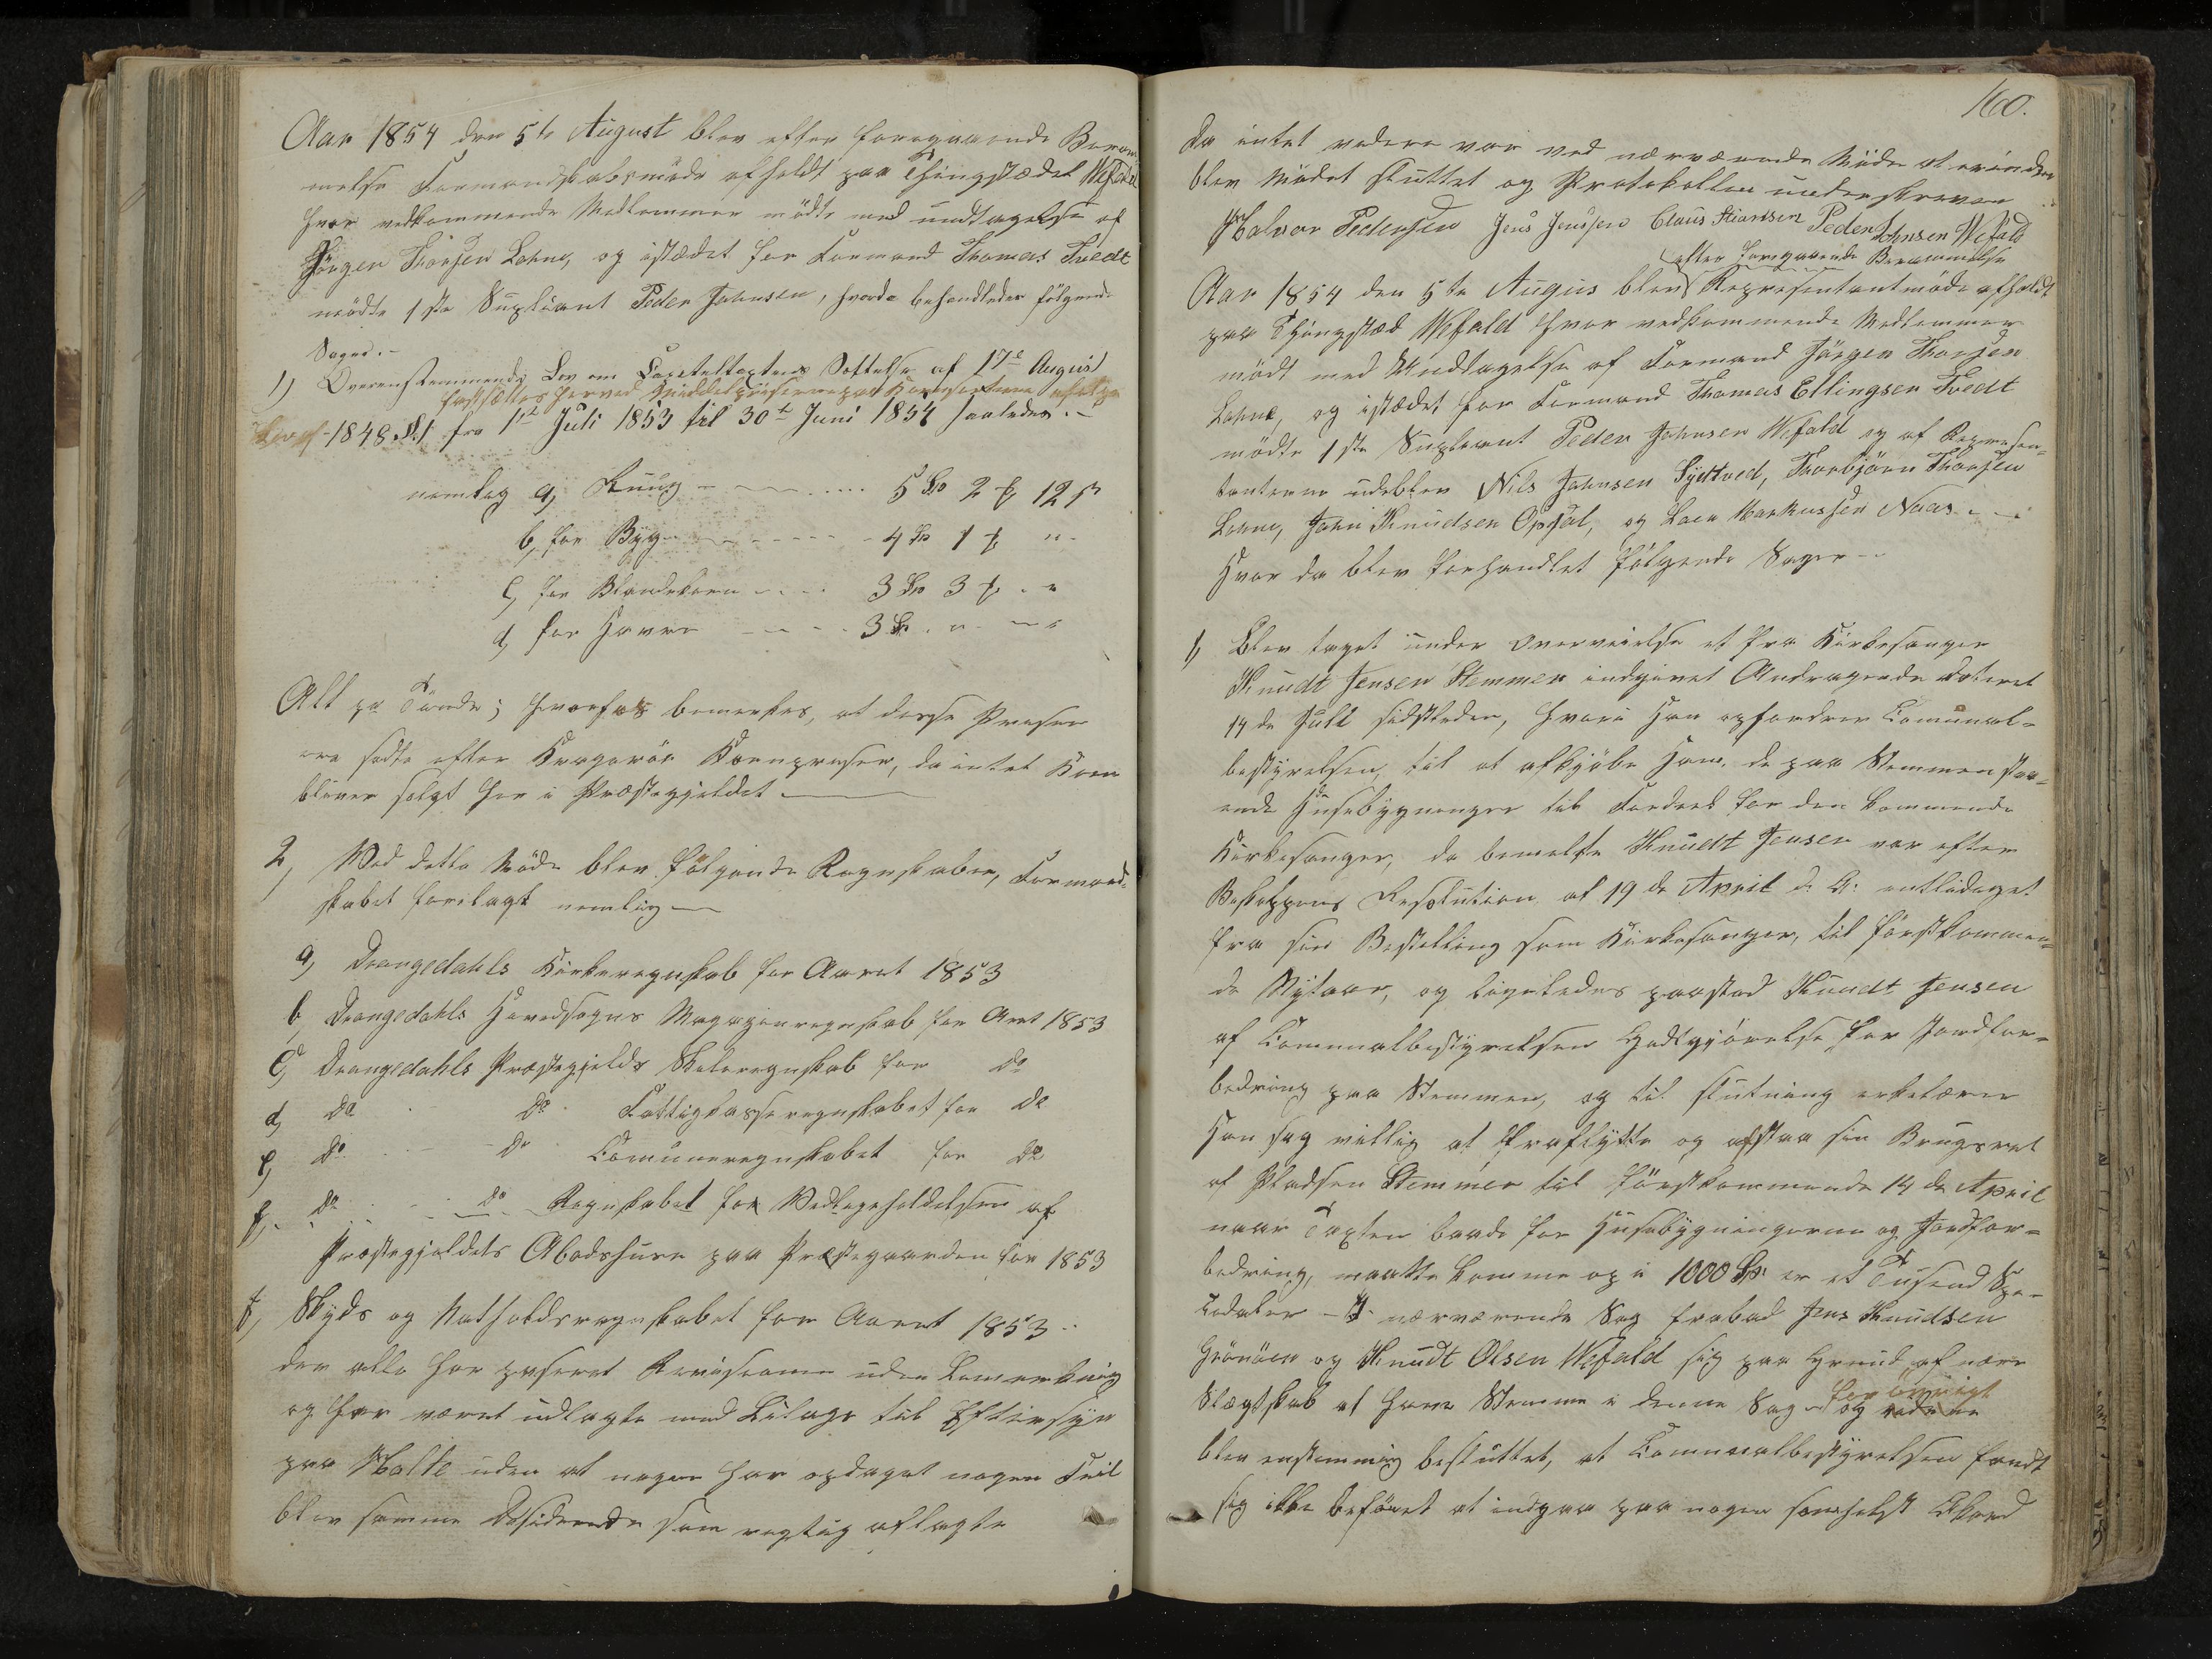 Aar 1854 den 5te August blev efter foregaaende Beram¬
melse Formandskabsmöde afholdt paa Thingstædet Wefald
hvor vedkommende Medlemmer mödte med undtagelse af
Jörgen Thorsen Lohne, og istædet for Formand Thomas Tvedt
mödte 1ste Supliant Peder Johnsen, hvorda behandledes fölgende
Sager.-
1) Overensstemmende Lov om Capiteltaxtens Sættelse af 17de August
fastsættes herved Middelpriserne paa Kornsorterne
Lov af 1848 §.1 fra 1ste Juli 1853 til 30te Juni 1854 saaledes.-
nemlig a, Ruug - 5 Sp 2 ₰ 12 s
b, for Byg - 4 Sp 1 ₰ "
c, for Blandekorn - 3 Sp 3 ₰ "
d, for Havre - 3 Sp " "
Alt pr Tönde; hvorhos bemerkes, at disse Priser
ere satte efter Kragerös Kornpriser, da intet Korn
bliver solgt her i Præstegjeldet
2, Ved dette Möde blev fölgende Regnskaber, Formand¬
skabet forelagt nemlig
a, Drangedahls Kirkeregnskab for Aaret 1853
b Drangedahls Hovedsogns Magazinregnskab for Aaret 1853
c, Drangedahls Præstegjelds Skoleregnskab for do
d, do do Fattigkasseregnskabet for do
e, do - do Comuneregnskabet for do
f,. do do Regnskabet for Vedligeholdelsen af
Præstegjeldets Aabodshuse paa Præstegaarden for 1853
f, Skyds og Natholdsregnskabet for Aaret 1853 -
der alle har paseret Revisionen uden Bemerkning
og har været udlagte med Bilage til Eftersyn
paa Holte uden at nogen har opdaget nogen Feil
blev samme Desiderede som rigtig aflagte
160.
Da intet videre var ved nærværende Möde at erindre
blev Mödet sluttet og Protokollen underskreven
Halvor Pedersen Jens Jensen Claus Stianssen Peder Johnsen Wefald
efter foregaaende Berammelse
Aar 1854 den 5te Augus blev Representantmöde afholdt
paa Thingstæd Wefald hvor vedkommende Medlemmer
mödt med Undtagelse af Formand Jörgen Thorsen
Lohne, og istædet for Formand Thomas Ellingsen Tvedt
mödte 1ste Supleant Peder Johnsen Wefald og af Represen¬
tanterne udeblev Nils Johnsen Sydtved, Thorbjörn Thorsen
Lohne, John Knudsen Opsal, og Lars Markussen Naas - -
Hvor da blev forhandlet fölgende Sager -
1, Blev taget under Overveielse et fra Kirkesanger
Knudt Jensen Stemmen indgivet Andragende dateret
14de Juli sidstleden, hvori han opfordrer Comunal-
bestyrelsen, til at afkjöbe ham de paa Stemmen staa¬
ende Husebygninger til Fordeel for den kommende
Kirkesanger, da bemelte Knudt Jensen var efter
Biskoppens Resolution af 19de April d: A: entlediget
fra sin Bestilling som Kirkesanger, til förstkommen¬
de Nytaar, og ligeledes paastod Knudt Jensen
af Comunalbestyrelsen Godtgjörelse for Jordfor¬
bedring paa Stemmen, og til slutning erklærer
Han sig villig at fraflytte og afstaa sin Brugsret
af Pladsen Stemmen til förstkommende 14de April
naar Taxten baade for Husebygningerne og Jordfor¬
bedring, maatte komme op i 1000 Sp er et Tusend Spe¬
ciedaler - I nærværende Sag frabad Jens Knudsen
Grönåen og Knudt Olsen Wefald sig paa Grund af nære
Slægtskab at have Stemme i denne Sag - for övrigt
blev enstemmig besluttet, at Comunalbestyrelsen fandt
sig ikke beföiet at indgaa paa nogen somhelst Akord